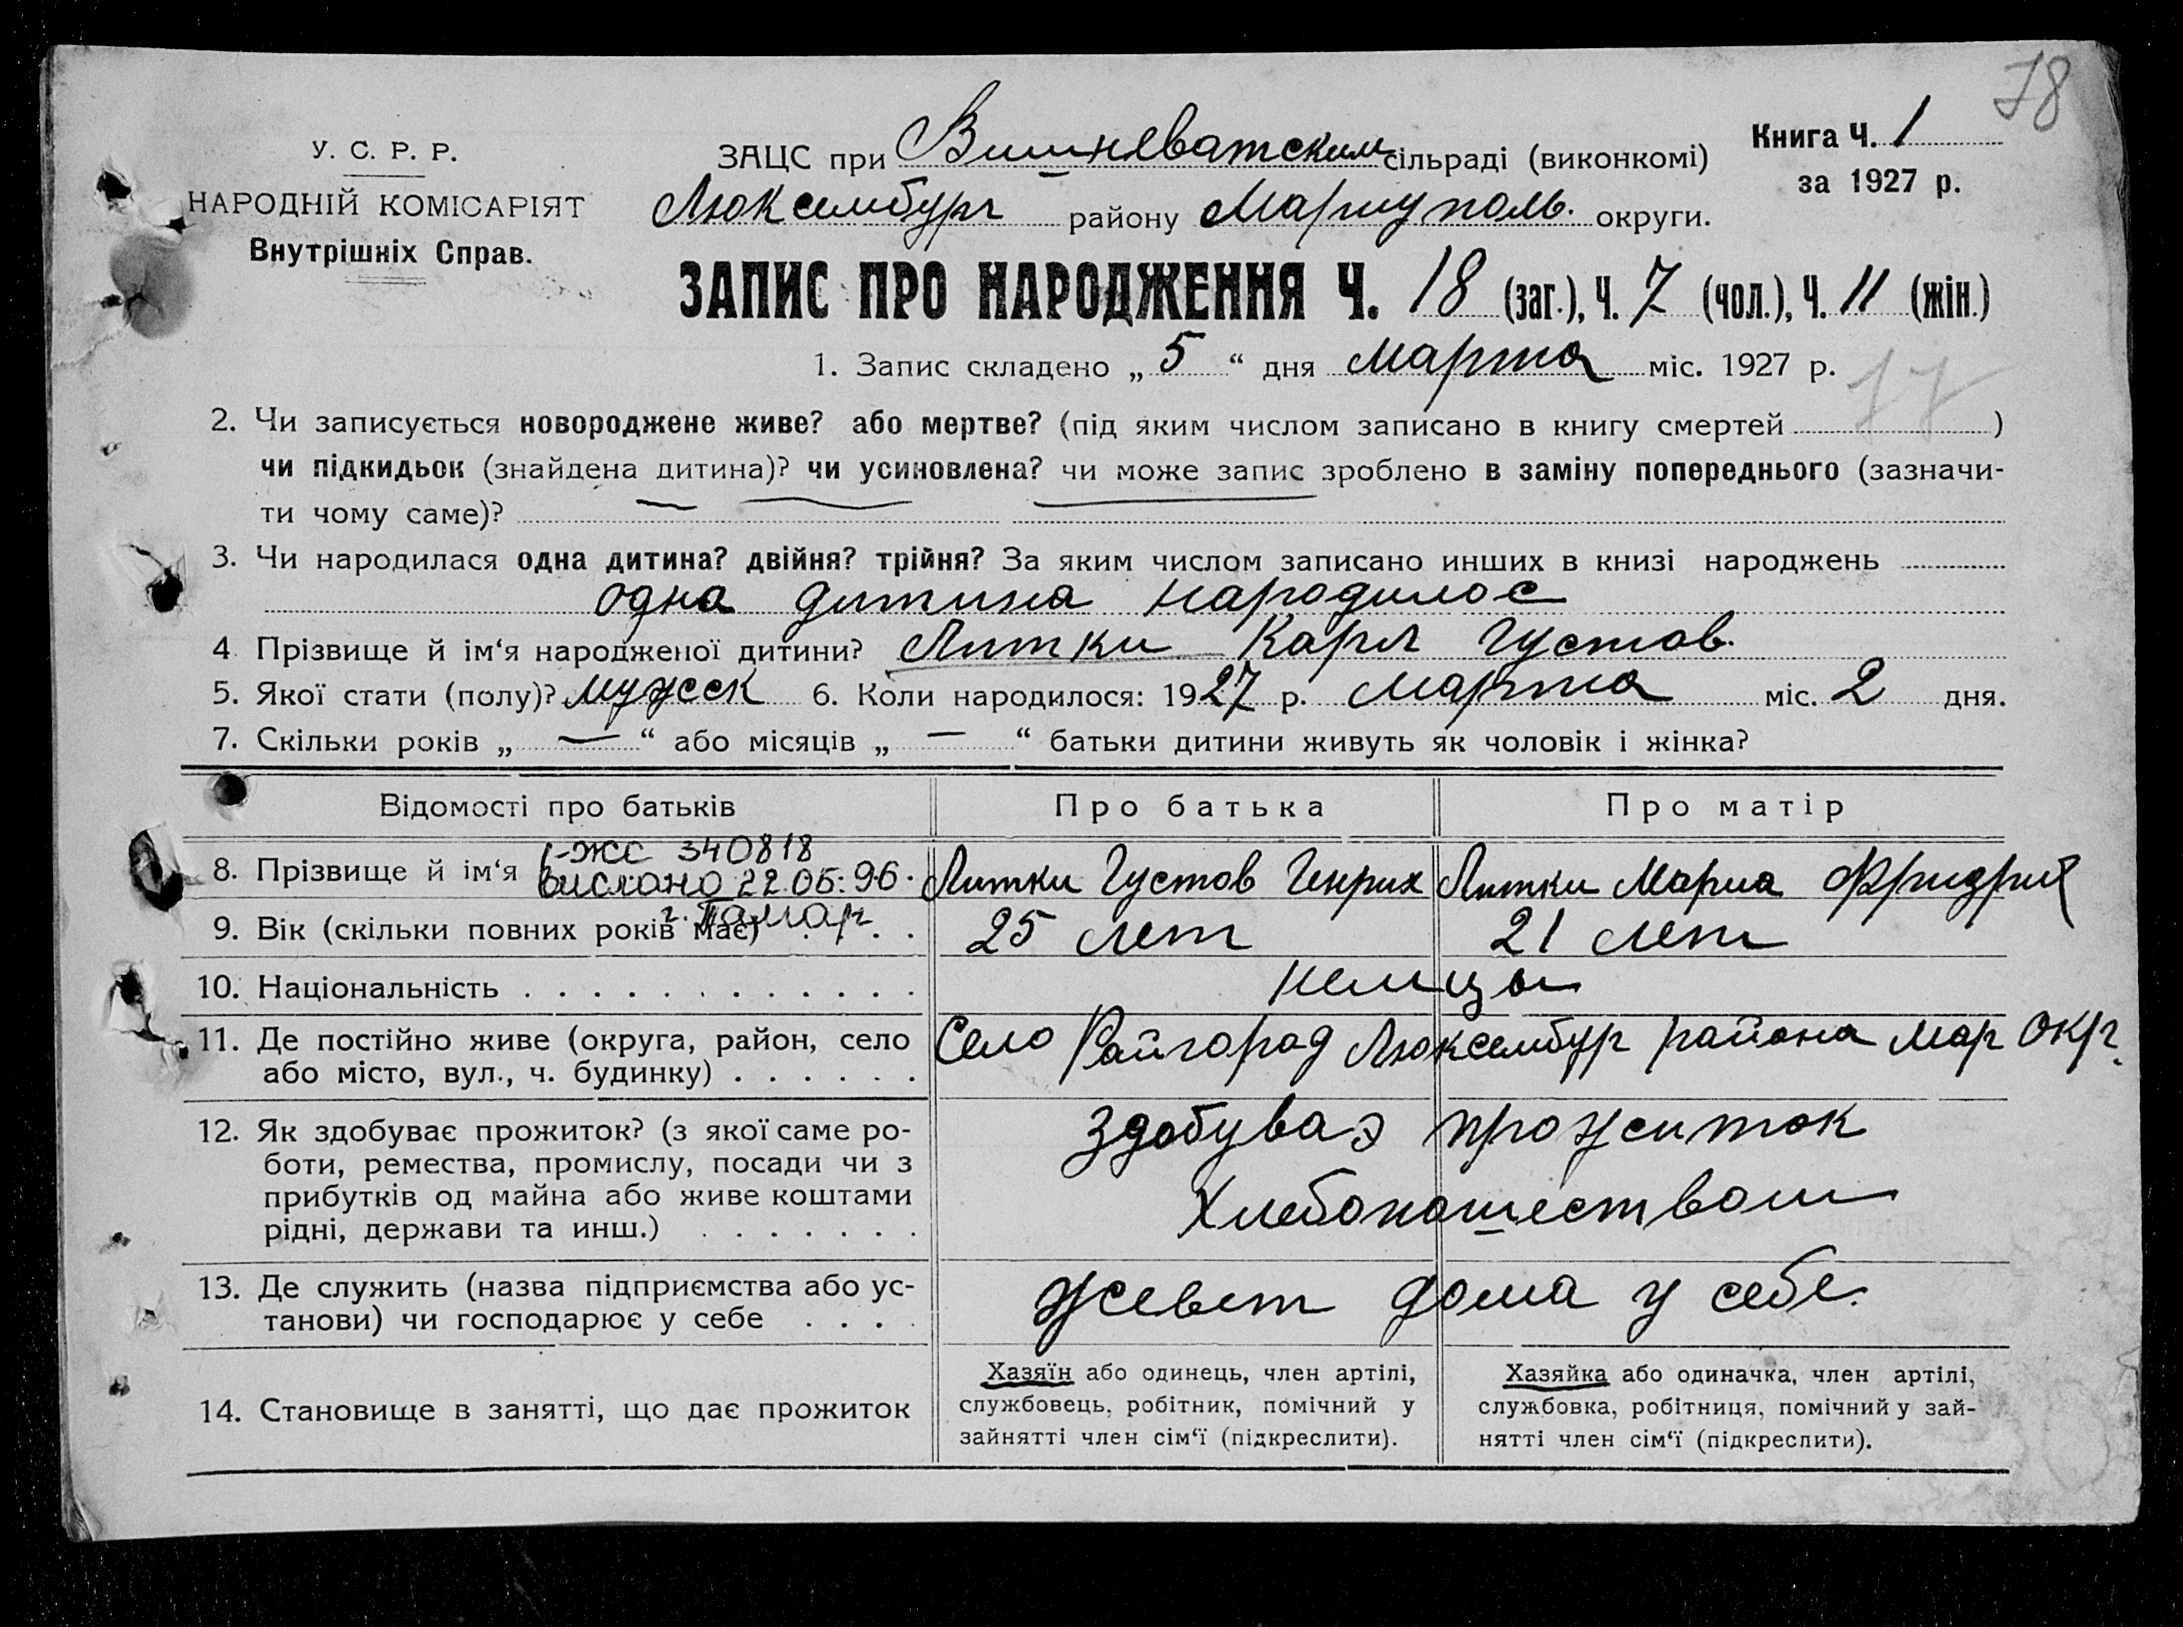 78
У. С. Р. Р.
НАРОДНІЙ КОМІСАРІЯТ
Внутрішніх Справ.
ЗАЦС при Вишневатским сільраді (виконкомі)
Книга Ч. 1
за 1927 р.
Люксембург району Мариуполь. округи.
ЗАПИС ПРО НАРОДЖЕННЯ Ч. 18 (заг.), Ч. 7 (чол.), Ч. 11 (жін.)
1. Запис складено „ 5 “ дня марта міс. 1927 р.
17
2. Чи записується новороджене живе? або мертве? (під яким числом записано в книгу смертей )
чи підкидьок (знайдена дитина)? чи усиновлена? чи може запис зроблено в заміну попереднього (зазначи-
ти чому саме)?
3. Чи народилася одна дитина? двійня? трійня? За яким числом записано инших в книзі народжень
одна дитина народилос
4 Прізвище й ім‘я народженої дитини? Литки Карл Густов.
5. Якої стати (полу)? мужеск 6. Коли народилося: 1927 р. марта міс. 2 дня.
7. Скільки років „ — “ або місяців „ — “ батьки дитини живуть як чоловік і жінка?
Відомості про батьків Про батька Про матір
І-ЖС 340818
8. Прізвище й ім‘я вислано 22.05.96. Литки Густов Генрих Литки Мариа Фридрих
9. Вік (скільки повних років має) 25 лет 21 лет
10. Національність немцы
11. Де постійно живе (округа, район, село
або місто, вул., ч. будинку)
Село Райгород Люксембур района Мар Окр.
12. Як здобуває прожиток? (з якої саме ро-
боти, ремества, промислу, посади чи з
прибутків од майна або живе коштами
рідні, держави та инш.)
здобуваэ прожиток
хлебопашеством
13. Де служить (назва підприємства або ус-
танови) чи господарює у себе
жевет дома у себе.
14. Становище в занятті, що дає прожиток
Хазяїн або одинець, член артілі,
службовець, робітник, помічний у
зайнятті член сім‘ї (підкреслити).
Хазяйка або одиначка, член артілі,
службовка, робітниця, помічний у зай-
нятті член сім‘ї (підкреслити).